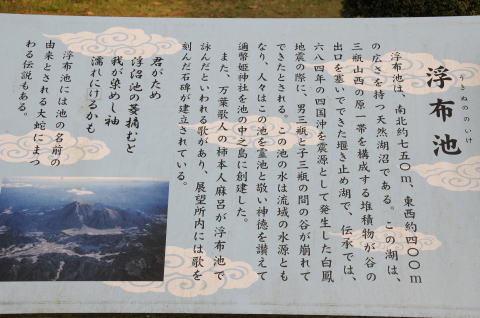 浮布池
うきぬののいけ
浮布池は、南北約七五〇m、東西約四〇〇m
の広さを持つ天然湖沼である。この湖は、
三瓶山西の原一帯を構成する堆積物が谷の
出口を塞いでできた堰き止め湖で、伝承では、
六八四年の四国沖を震源として発生した白鳳
地震の際に、男三瓶と子三瓶の間の谷が崩れて
できたとされる。この池の水は流域の水源とも
なり、人々はこの池を霊池と敬い神徳を讃えて
邇幣姫神社を池の中之島に創建した。
また、万葉歌人の柿本人麻呂が浮布池で
詠んだといわれる歌があり、展望所内には歌を
刻んだ石碑が建立されている。
君がため
浮沼池の菱摘むと
我が染めし袖
濡れにけるかも
浮布池には池の名前の
由来とされる大蛇にまつ
わる伝説もある。